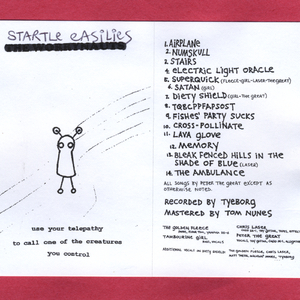 STARTLE EASILIES
use your telepathy
to call one of the creatures
you control
1. AIRPLANE
2. NUMSKULL
3. STAIRS
4. ELECTRIC LIGHT ORACLE
5. SUPERQUICK (FLEECE-GIRL-LASER-THE GREAT)
6. SATAN (GIRL)
7. DIETY SHIELD (GIRL-THE GREAT)
8. TQBCPPFAPSOST
9. FISHES' PARTY SUCKS
10. CROSS-POLLINATE
11. LAVA GLOVE
12. MEMORY
13. BLEAK FENCED HILLS IN THE
SHADE OF BLUE (LASER)
14. THE AMBULANCE
ALL SONGS BY PETER THE GREAT EXCEPT AS
OTHERWISE NOTED.
RECORDED BY TYEBORG
MASTERED BY TOM NUNES
THE GOLDEN FLEECE
TAMBOURINE GIRL
CHRIS LASER
PETER THE GREAT